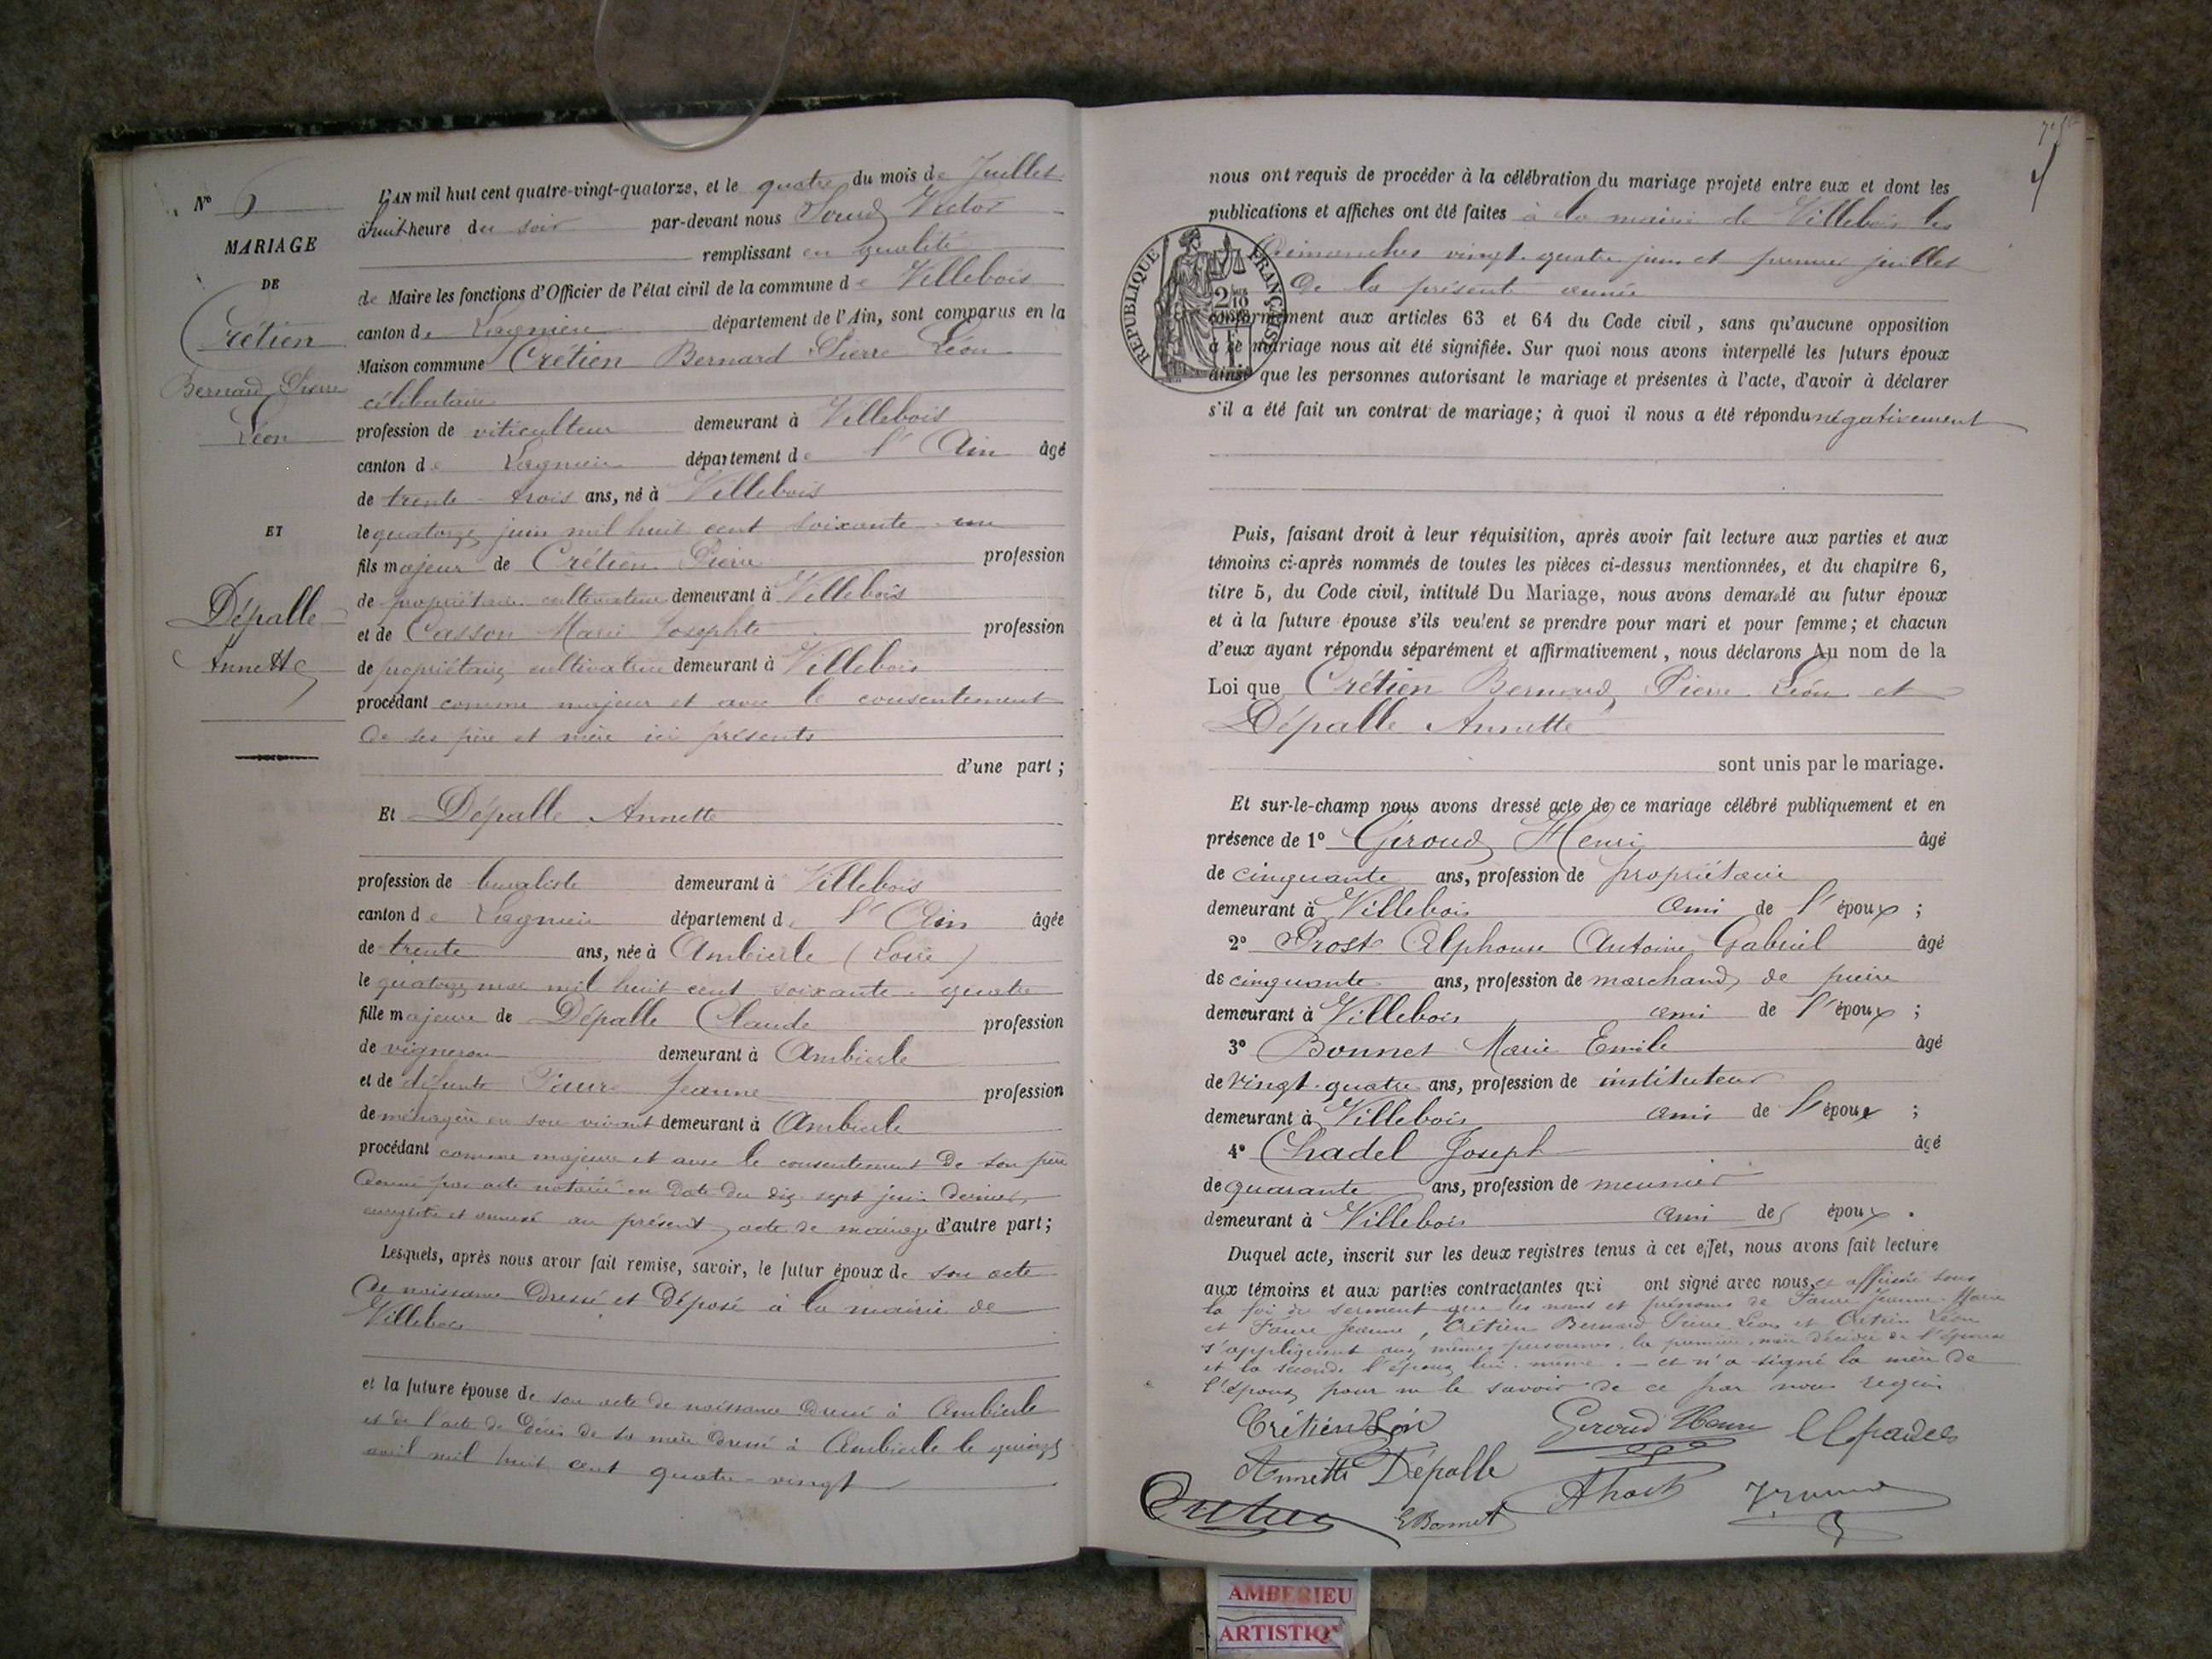 N° 6
MARIAGE
DE
Crétien
Bernard Pierre
Léon
ET
Dépalle
Annette
L'AN mil huit cent quatre-vingt-quatorze, et le quatre du mois de Juillet
à huit heure du soir par-devant nous Victor
remplissant en qualité
de Maire les fonctions d'Officier de l'état civil de la commune de Villebois
canton de Lagnieu département de l'Ain, sont comparus en la
Maison commune Crétien Bernard Pierre Léon
célibataire
profession de viticulteur demeurant à Villebois
canton de Lagnieu département de l'Ain âgé
de trente-trois ans, né à Villebois
le quatorze juin mil huit cent soixante-un
fils majeur de Crétien Pierre profession
de propriétaire cultivateur demeurant à Villebois
et de Casson Marie Josephte profession
de propriétaire cultivatrice demeurant à Villebois
procédant comme majeur et avec le consentement
de ses père et mère ici présents
d'une part ;
Et Dépalle Annette
profession de buraliste demeurant à Villebois
canton de Lagnieu département de l'Ain âgée
de trente ans, née à Ambierle (Loire)
le quatorze mai mil huit cent soixante-quatre
fille majeure de Dépalle Claude profession
de vigneron demeurant à Ambierle
et de défunte Faure Jeanne profession
de ménagère en son vivant demeurant à Ambierle
procédant comme majeure et avec le consentement de son père
donné par acte notarié en date du dix-sept juin dernier,
enregistré et annexé au présent acte de mariage d'autre part ;
Lesquels, après nous avoir fait remise, savoir, le futur époux de son acte
de naissance dressé et déposé à la mairie de
Villebois
et la future épouse de son acte de naissance dressé à Ambierle
et de l'acte de décès de sa mère dressé à Ambierle le quinze
avril mil huit cent quatre-vingt
nous ont requis de procéder à la célébration du mariage projeté entre eux et dont les
publications et affiches ont été faites à la mairie de Villebois les
dimanches vingt-quatre juin et premier juillet
de la présente année
conformément aux articles 63 et 64 du Code civil, sans qu'aucune opposition
à ce mariage nous ait été signifiée. Sur quoi nous avons interpellé les futurs époux
ainsi que les personnes autorisant le mariage et présentes à l'acte, d'avoir à déclarer
s'il a été fait un contrat de mariage; à quoi il nous a été répondu négativement
RÉPUBLIQUE FRANÇAISE
Puis, faisant droit à leur réquisition, après avoir fait lecture aux parties et aux
témoins ci-après nommés de toutes les pièces ci-dessus mentionnées, et du chapitre 6,
titre 5, du Code civil, intitulé Du Mariage, nous avons demandé au futur époux
et à la future épouse s'ils veulent se prendre pour mari et pour femme; et chacun
d'eux ayant répondu séparément et affirmativement, nous déclarons Au nom de la
Loi que Crétien Bernard Pierre Léon et
Dépalle Annette
sont unis par le mariage.
Et sur-le-champ nous avons dressé acte de ce mariage célébré publiquement et en
présence de 1° Giroud Henri âgé
de cinquante ans, profession de propriétaire
demeurant à Villebois ami de l'époux ;
2° Prost Alphonse Antoine Gabriel âgé
de cinquante ans, profession de marchand de pierre
demeurant à Villebois ami de l'époux ;
3° Bonnet Marie Emile âgé
de vingt-quatre ans, profession de instituteur
demeurant à Villebois ami de l'époux ;
4° Chadel Joseph âgé
de quarante ans, profession de meunier
demeurant à Villebois ami de époux .
Duquel acte, inscrit sur les deux registres tenus à cet effet, nous avons fait lecture
aux témoins et aux parties contractantes qui ont signé avec nous, et affirmé sous
la foi du serment que les noms et prénoms de Faure Jeanne Marie
et Faure Jeanne, Crétien Bernard Pierre Léon et Crétien Léon
s'appliquent aux mêmes personnes, la première, mère décédée de l'épouse
et la seconde l'époux lui-même. — et n'a signé la mère de
l'époux pour ne le savoir de ce par nous requis
Crétien Léon Giroud Henri Chadel
Annette Dépalle
Crétien E Bonnet AProst
AMBERIEU
ARTISTIQ